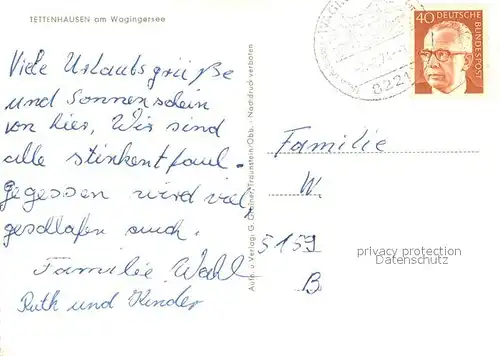 TETTENHAUSEN am Wagingersee
Viele Urlaubsgrüße
und Sonnenschein
von hier, Wir sind
alle stinkentfaul -
gegessen wird viel,
geschlafen auch.
Familie Wahl
Ruth und Kinder
Aufn. u. Verlag: G. Traunstein/Obb. - Nachdruck verboten
WAGING
8221
40 DEUTSCHE
BUNDESPOST
Familie
W.
5159
B
privacy protection
Datenschutz